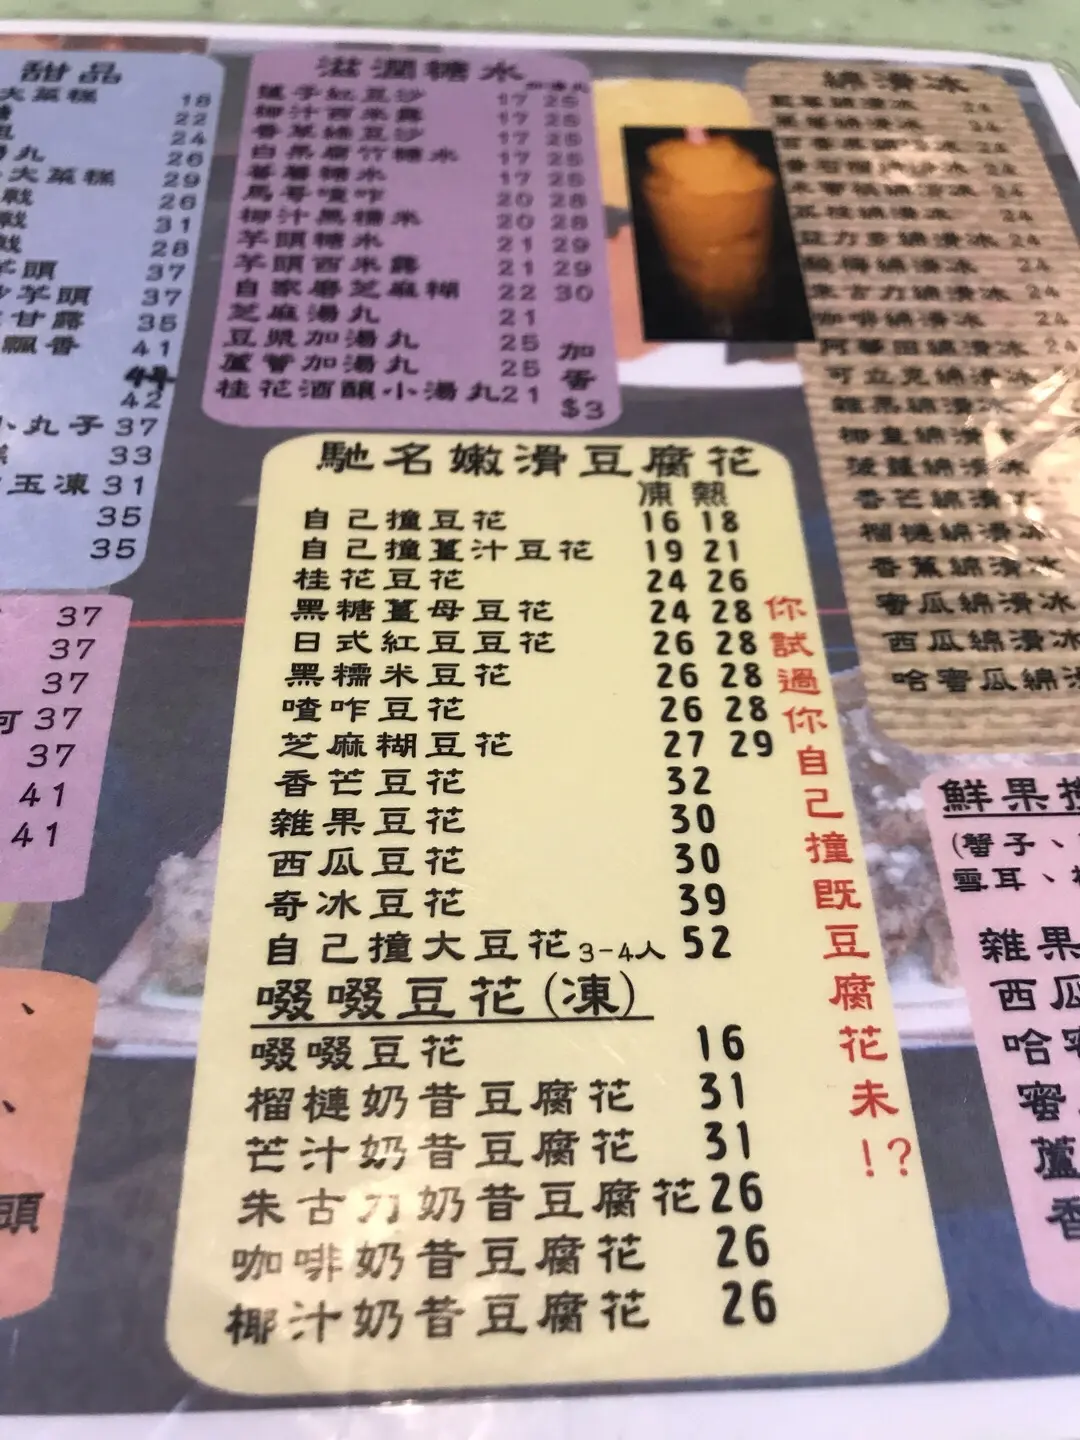 甜品
大菜糕 18
22
24
湯丸 26
大菜糕 29
戟 26
戟 31
戟 28
芋頭 37
沙芋頭 37
甘露 35
飄香 41
44
42
小丸子 37
糕 33
玉凍 31
35
35
37
37
37
可 37
37
41
41
頭
滋潤糖水
蓮子紅豆沙 17 25
椰汁西米露 17 25
香草綠豆沙 17 25
白果腐竹糖水 17 25
蕃薯糖水 17 25
馬哥喳咋 20 28
椰汁黑糯米 20 28
芋頭糖水 21 29
芋頭西米露 21 29
自家磨芝麻糊 22 30
芝麻湯丸 21
豆漿加湯丸 25
蘆薈加湯丸 25
桂花酒釀小湯丸 21
加蛋$3
馳名嫩滑豆腐花
凍 熱
自己撞豆花 16 18
自己撞薑汁豆花 19 21
桂花豆花 24 26
黑糖薑母豆花 24 28
日式紅豆豆花 26 28
黑糯米豆花 26 28
喳咋豆花 26 28
芝麻糊豆花 27 29
香芒豆花 32
雜果豆花 30
西瓜豆花 30
奇冰豆花 39
自己撞大豆花3-4人 52
啜啜豆花(凍)
啜啜豆花 16
榴槤奶昔豆腐花 31
芒汁奶昔豆腐花 31
朱古力奶昔豆腐花 26
咖啡奶昔豆腐花 26
椰汁奶昔豆腐花 26
你試過你自己撞既豆腐花未!?
綿滑冰
綿滑冰 24
綿滑冰 24
綿滑冰 24
綿滑冰 24
綿滑冰 24
綿滑冰 24
益力多綿滑冰 24
酸梅綿滑冰 24
朱古力綿滑冰 24
咖啡綿滑冰 24
阿華田綿滑冰 24
可立克綿滑冰
雜果綿滑冰
椰皇綿滑冰
菠蘿綿滑冰
香芒綿滑冰
榴槤綿滑冰
香蕉綿滑冰
蜜瓜綿滑冰
西瓜綿滑冰
哈蜜瓜綿滑
鮮果撈
(蟹子、
雪耳、
雜果
西瓜
哈蜜
蜜
蘆
香